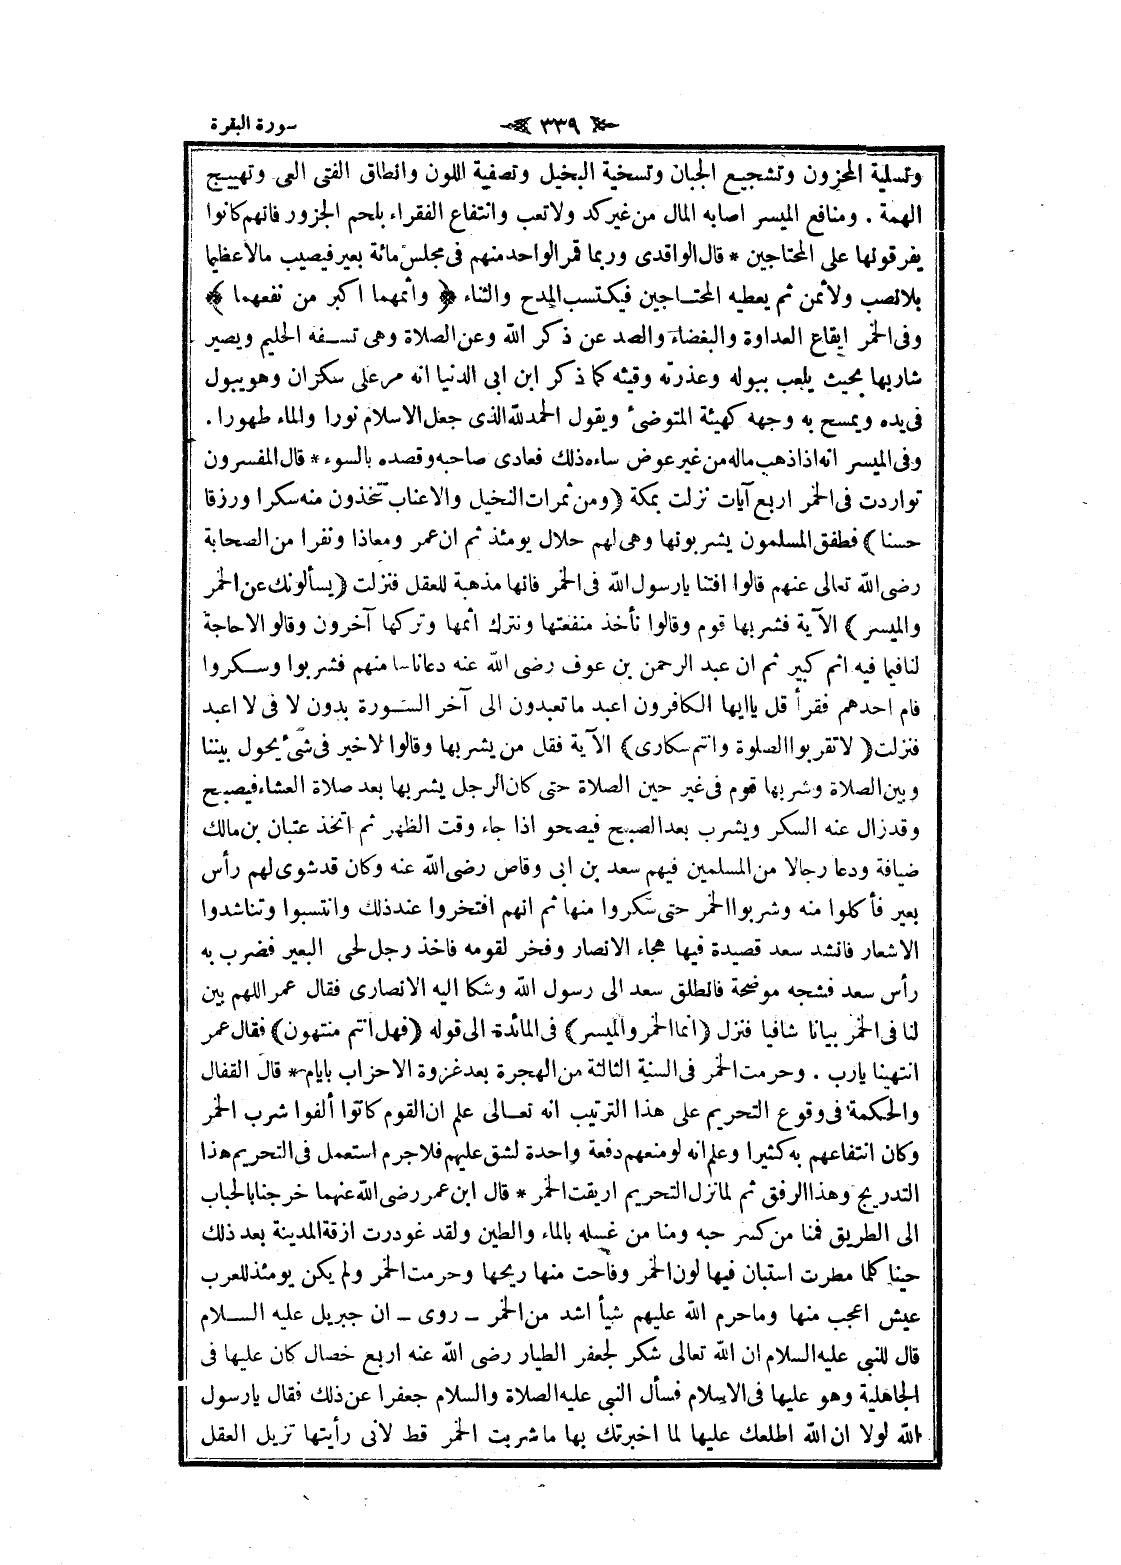 سورة البقرة
٣٣٩
وتسلية المحزون وتشجيع الجبان وتسخية البخيل وتصفية اللون وانطاق الفتى العى وتهييج
الهمة . ومنافع الميسر اصابه المال من غير كد ولا تعب وانتفاع الفقراء بلحم الجزور فانهم كانوا
يفرقونها على المحتاجين * قال الواقدى وربما قمر الواحد منهم فى مجلس مائة بعير فيصيب مالا عظيما
بلا نصب ولا ثمن ثم يعطيه المحتاجين فيكتسب المدح والثناء ﴿ واثمهما اكبر من نفعهما ﴾
وفى الخمر ايقاع العداوة والبغضاء والصد عن ذكر الله وعن الصلاة وهى تسفه الحليم ويصير
شاربها بحيث يلعب ببوله وعذرته وقيئه كما ذكر ابن ابى الدنيا انه مر على سكران وهو يبول
فى يده ويمسح به وجهه كهيئة المتوضئ ويقول الحمد لله الذى جعل الاسلام نورا والماء طهورا .
وفى الميسر انه اذا ذهب ماله من غير عوض ساءه ذلك فعادى صاحبه وقصده بالسوء * قال المفسرون
تواردت فى الخمر اربع آيات نزلت بمكة ( ومن ثمرات النخيل والاعناب تتخذون منه سكرا ورزقا
حسنا ) فطفق المسلمون يشربونها وهى لهم حلال يومئذ ثم ان عمر ومعاذا ونفرا من الصحابة
رضى الله تعالى عنهم قالوا افتنا يا رسول الله فى الخمر فانها مذهبة للعقل فنزلت ( يسألونك عن الخمر
والميسر ) الآية فشربها قوم وقالوا نأخذ منفعتها ونترك اثمها وتركها آخرون وقالوا لا حاجة
لنا فيما فيه اثم كبير ثم ان عبد الرحمن بن عوف رضى الله عنه دعا ناسا منهم فشربوا وسكروا
فام احدهم فقرأ قل يا ايها الكافرون اعبد ما تعبدون الى آخر السورة بدون لا فى لا اعبد
فنزلت ( لا تقربوا الصلوة وانتم سكارى ) الآية فقل من يشربها وقالوا لا خير فى شئ يحول بيننا
وبين الصلاة وشربها قوم فى غير حين الصلاة حتى كان الرجل يشربها بعد صلاة العشاء فيصبح
وقد زال عنه السكر ويشرب بعد الصبح فيصحو اذا جاء وقت الظهر ثم اتخذ عتبان بن مالك
ضيافة ودعا رجالا من المسلمين فيهم سعد بن ابى وقاص رضى الله عنه وكان قد شوى لهم رأس
بعير فأكلوا منه وشربوا الخمر حتى سكروا منها ثم انهم افتخروا عند ذلك وانتسبوا وتناشدوا
الاشعار فانشد سعد قصيدة فيها هجاء الانصار وفخر لقومه فاخذ رجل لحى البعير فضرب به
رأس سعد فشجه موضحة فانطلق سعد الى رسول الله وشكا اليه الانصارى فقال عمر اللهم بين
لنا فى الخمر بيانا شافيا فنزل ( انما الخمر والميسر ) فى المائدة الى قوله ( فهل انتم منتهون ) فقال عمر
انتهينا يا رب . وحرمت الخمر فى السنة الثالثة من الهجرة بعد غزوة الاحزاب بايام * قال القفال
والحكمة فى وقوع التحريم على هذا الترتيب انه تعالى علم ان القوم كانوا ألفوا شرب الخمر
وكان انتفاعهم به كثيرا وعلم انه لو منعهم دفعة واحدة لشق عليهم فلا جرم استعمل فى التحريم هذا
التدريج وهذا الرفق ثم لما نزل التحريم اريقت الخمر * قال ابن عمر رضى الله عنهما خرجنا بالحباب
الى الطريق فمنا من كسر حبه ومنا من غسله بالماء والطين ولقد غودرت ازقة المدينة بعد ذلك
حينا كلما مطرت استبان فيها لون الخمر وفاحت منها ريحها وحرمت الخمر ولم يكن يومئذ للعرب
عيش اعجب منها وما حرم الله عليهم شيأ اشد من الخمر _ روى _ ان جبريل عليه السلام
قال للنبى عليه السلام ان الله تعالى شكر لجعفر الطيار رضى الله عنه اربع خصال كان عليها فى
الجاهلية وهو عليها فى الاسلام فسأل النبى عليه الصلاة والسلام جعفرا عن ذلك فقال يا رسول
الله لولا ان الله اطلعك عليها لما اخبرتك بها ما شربت الخمر قط لانى رأيتها تزيل العقل